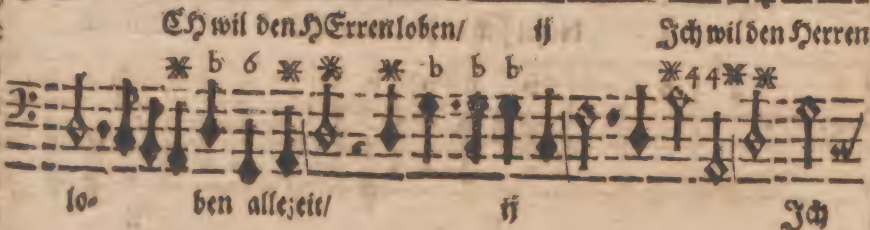 CH wil den HErren loben/ ij Ich wil den Herren
* b 6 * * * b b b * 4 4 * *
lo- ben allezeit/ ij Ich